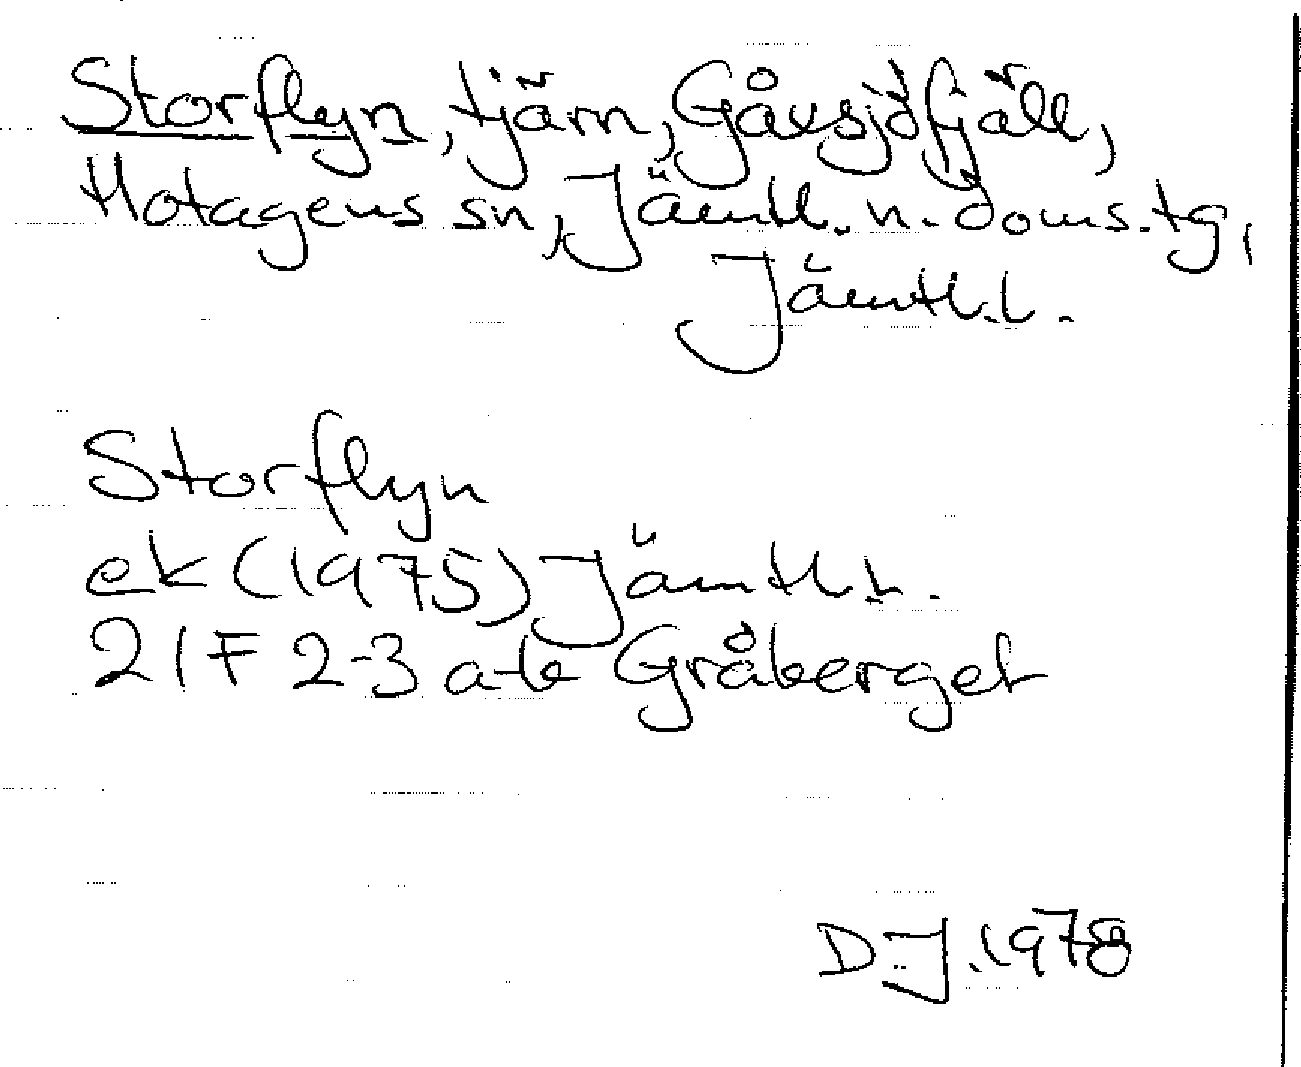 Storflyn, tjärn, Gåxsjöfjäll,
Hotagens sn, Jämtl. n. doms. tg,
Jämtl. l.
Storflyn
ek (1975) Jämtl. l.
21F 2-3 a-b Gråberget
D.J. 1978